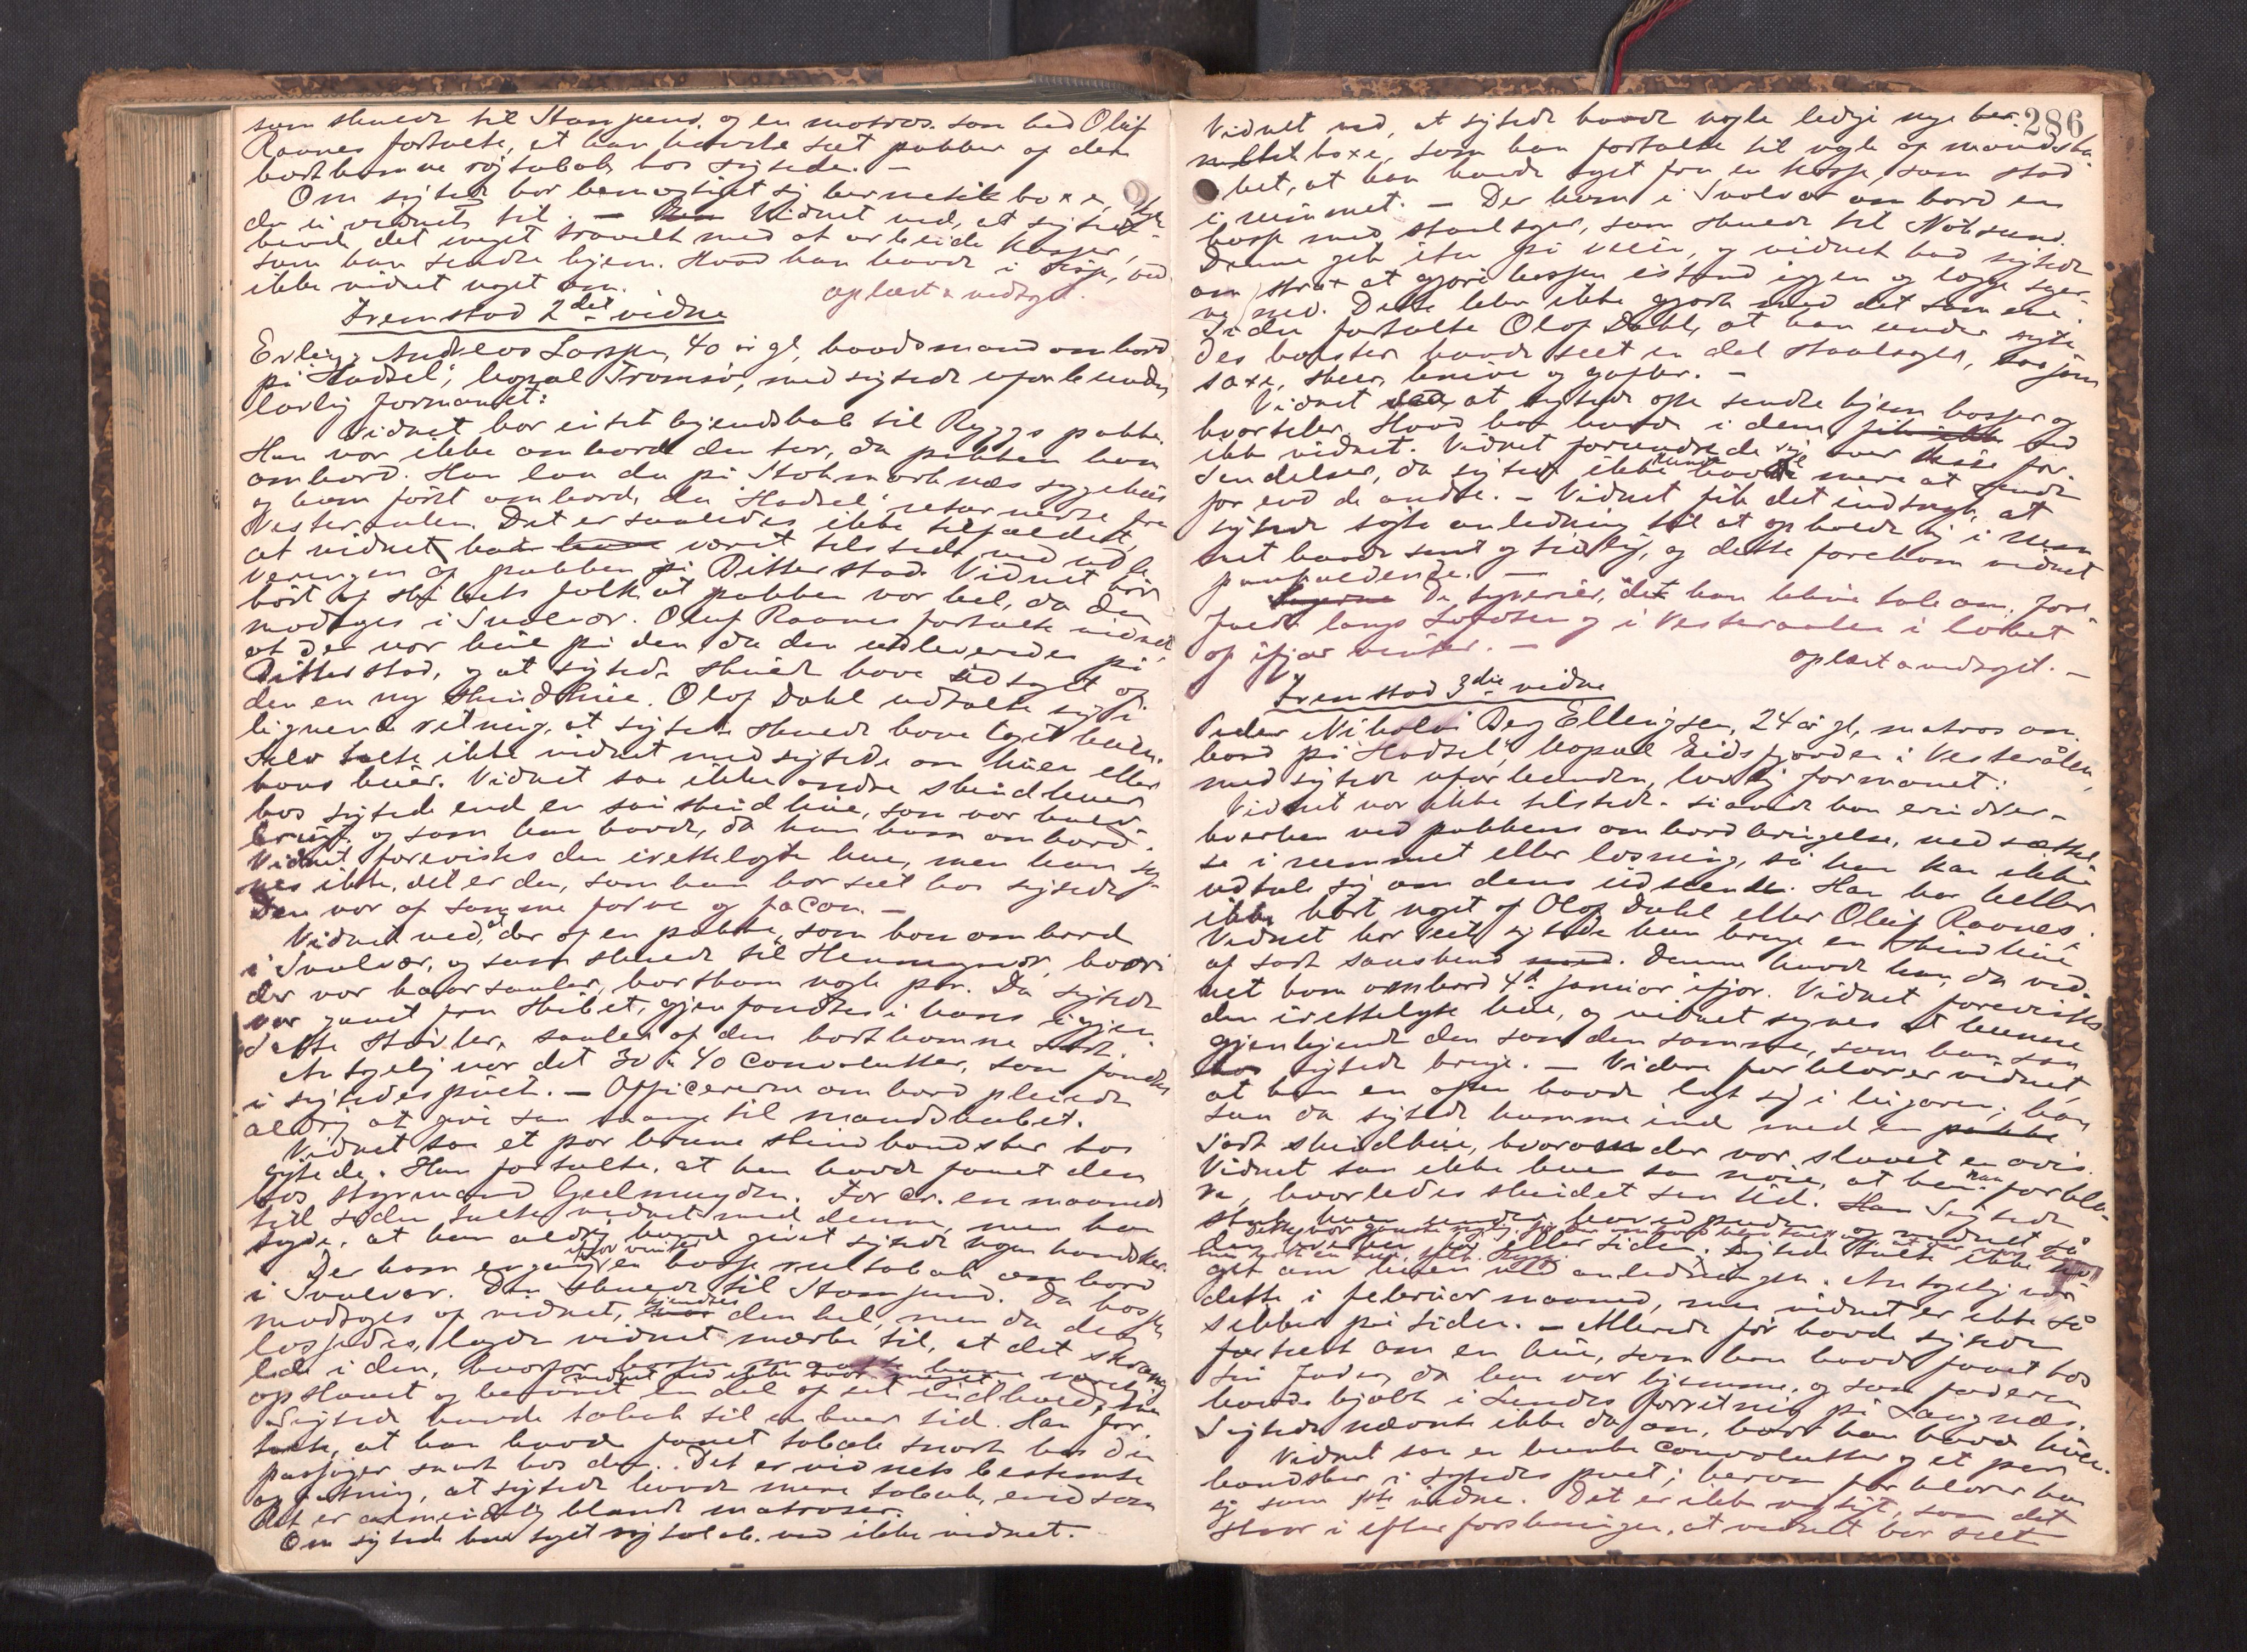 som skulde til Stamsund, og en matros som hed Oluf
Ravnes fortalte, at han havde seet pakker af den
bortkomne røgtobak hos sigtede. —
Om sigtede har bemægtiget sig hermetik boxe,
da ei vidnet til. — Vidnet ved, at sigtede
havde det meget travelt med at arbeide kasser,
som han sendte hjem. Hvad han havde i disse, ved
ikke vidnet noget om.
oplæst & vedtaget.
Fremstod 2det vidne
Erling Andreas Larssen, 40 år gl, baadsmand ombord
på "Hadsel", bopæl Tromsø, med sigtede uforbunden,
lovlig formanet:
Vidnet har intet kjendskab til Ryggs pakke.
Han var ikke ombord den tur, da pakken kom
ombord. Han laa da på Stokmarknæs sygehus
og kom først ombord, da "Hadsel" returnerte fra
Vesteraalen. Det er saaledes ikke tilfældet,
at vidnet har været tilstede ved udle
veringen af pakken på Ditterstad. Vidnet har
hørt af skibets folk at pakken var hel, da den
modtoges i Svolvær. Oluf Ravnes fortalte vidnet,
at der var hul på den da den udleveredes på
Ditterstad, og at sigtede skulde have udtaget af
den en ny skindhue. Olaf Dahl udtalte sig i
lignende retning, at sigtede skulde have taget huen.
Selv talte ikke vidnet med sigtede om huen eller
hans huer. Vidnet saa ikke andre skindhuer
hos sigtede end en saueskindhue, som var halv
brugt og som han havde, da han kom ombord.
Vidnet forevistes den irettelagte hue, men han sy-
nes ikke, det er den, som han har seet hos sigtede.
Den var af samme farve og facon. —
Vidnet ved, at der af en pakke, som kom ombord
i Svolvær, og som skulde til Henningsvær, hvori
der var haarsaaler, bortkom nogle par. Da sigtede
var gaaet fra skibet, gjenfandtes i hans igjen
satte støvler, saaler af den bortkomne sort.
Antagelig var det 30 à 40 convolutter, som fandtes
i sigtedes puet. — Officererne ombord pleiede
aldrig at give saa mange til mandskabet.
Vidnet saa et par brune skindhandsker hos
sigtede. Han fortalte, at han havde faaet dem
hos styrmand Geelmuyden. For ca. en maaned
tid siden talte vidnet med denne, men han
sagde, at han aldrig havde givet sigtede nogen handsker.
ifjor vinter
Der kom engang en kasse rultobak ombord
i Svolvær. Den skulde til Stamsund. Da kassen
modtoges af vidnet, kjendtes den hel, men da den
lossedes, lagde vidnet mærke til, at det skramg
lede i den, hvorfor
opslaaet og berøvet en del af sit indhold.
Sigtede havde tobak til enhver tid. Han for
talte, at han havde faaet tobak snart hos den
passager snart hos den. Det er vidnets bestemte
opfatning, at sigtede havde mere tobak, end som
det er almindelig blandt matroser.
Om sigtede har taget røgtobak ved ikke vidnet.
286
Vidnet ved, at sigtede havde nogle ledige nye her-
metikboxe, som han fortalte til nogle af mandska
bet, at han havde taget fra en kasse, som stod
i rummet. — Der kom i Svolvær ombord en
kasse med staalsager, som skulde til Nøksund.
Denne gik itu på veien, og vidnet bad sigtede
om strax at gjøre kassen istand igjen og lægge sager-
ne ned. Dette blev ikke gjort med det samme.
Siden fortalte Olaf Dahl, at han under sigte
des hoveder havde seet en del staalsager, saasom
saxe, skeer, knive og gafler. —
Vidnet ved, at sigtede ofte sendte hjem kasser og
kvarteler. Hvad han havde i dem, ved
ikke vidnet. Vidnet forundrede sig over disse for
sendelser, da sigtede ikke kunde have mere at sende
for end de andre. — Vidnet fik det indtryk, at
sigtede søgte anledning til at opholde sig i rum
met baade sent og tidlig, og dette forekom vidnet
paafaldende. —
De tyverier, det kan blive tale om, fore-
faldt langs Lofoten og i Vesteraalen i løbet
af ifjor vinter. —
oplæst & vedtaget. —
Fremstod 3die vidne
Peder Nikolai Berg Ellingsen, 24 år gl, matros om-
bord på "Hadsel", bopæl Eidsfjorden i Vesterålen,
med sigtede uforbunden, lovlig formanet:
Vidnet var ikke tilstede - saavidt han erindrer -
hverken ved pakkens ombordbringelse, nedsættel-
se i rummet eller losning, så han kan ikke
udtale sig om dens udseende. Han har heller
ikke hørt noget af Olaf Dahl eller Oluf Ravnes.
Vidnet har seet sigtede kun bruge en skindhue
af sort saueskind. Denne havde han, da vid-
net kom ombord 4de januar ifjor. Vidnet forevistes
den irettelagte hue, og vidnet synes at kunne
gjenkjende den som den samme, som han saa
sigtede bruge. — Videre forklarer vidnet,
at han en aften havde lagt sig i lugaren; han
saa da sigtede komme ind med en
sort skindhue, hvorom der var slaaet en avis.
Vidnet saa ikke huen saa nøie, at han kan forkla-
re, hvorledes skindet saa ud. Sigtede
eller siden. Sigtede talte ikke no-
get om huen ved anledningen. Antagelig var
dette i februar maaned, men vidnet er ikke så
sikker på tiden. — Allerede før havde sigtede
fortalt om en hue, som han havde faaet hos
sin fader, da han var hjemme, og som faderen
havde kjøbt i Lunds forretning på Langnæs.
Sigtede nævnte ikke da om, hvor han havde huen.
Vidnet saa en bunke convolutter og et par
handsker i sigtedes puet; herom forklarer han
sig som 1ste vidne. Det er ikke rigtigt, som det
staar i efterforskningen, at vidnet har seet